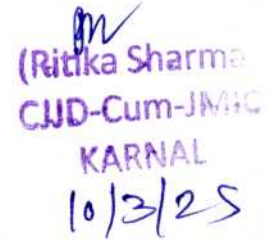 (Ritika Sharma
CJJD-Cum-JMIC
KARNAL
10/3/25